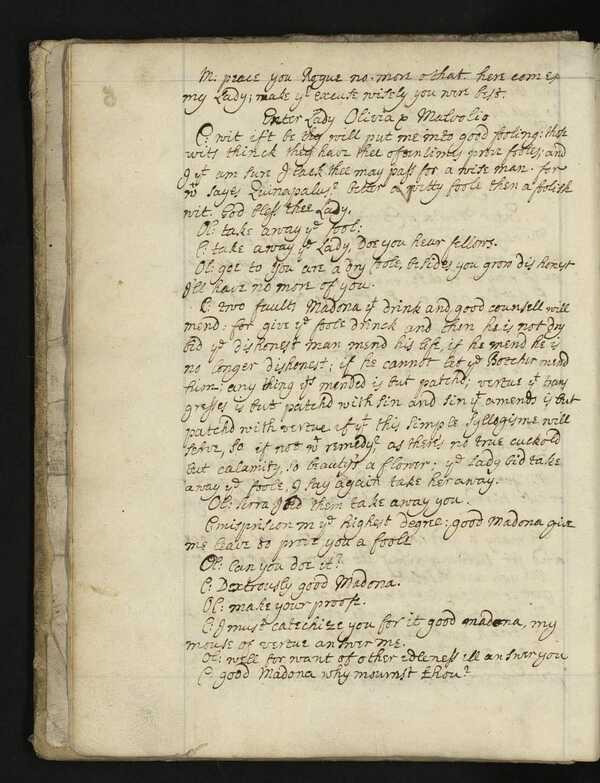 M: peace you Rogue no more o that here comes
my Lady; make yr excuse wisely you were best.
Enter Lady Olivia & Malvolio
C: wit ift be thy will put me into good fooling: those
wits thinck they have thee often times prove fooles; and
I yt am sure I lack thee may pass for a wise man. for
wt sayes Quinapalus? better a witty foole then a foolish
wit. God bless thee Lady.
Ol: take away ye fool:
C: take away ye Lady, Doe you hear fellows.
Ol: got to you are a dry foole, besides you grow dishonest
Ill have no more of you.
C: two faults Madona yt drink and good counsell will
mend: for give ye foole drinck and then he is not dry
bid ye dishonest man mend his life, if he mend he is
no longer dishonest; if he cannot let ye Botcher mend
him: any thing yts mended is but patchd; vertue yt trans
gresses is but patchd with sin and sin yt amends is but
patchd with vertue if yt this simple syllogisme will
serve, so if not wt remedy? as theres no true cuckold
but calamity, so beautys a flower. ye Lady bid take
away ye foole, I say again take her away.
Ol: sirra I bid them take away you.
C: misprision in ye highest degree: good Madona give
me leave to prove you a foole
Ol: Can you doe it?
C: Dextrously good Madona.
Ol: make your proofe.
C: I must catechize you for it good madona, my
mouse of vertue answer me.
Ol: well for want of other idleness ill answer you
C: good Madona why mournst thou?